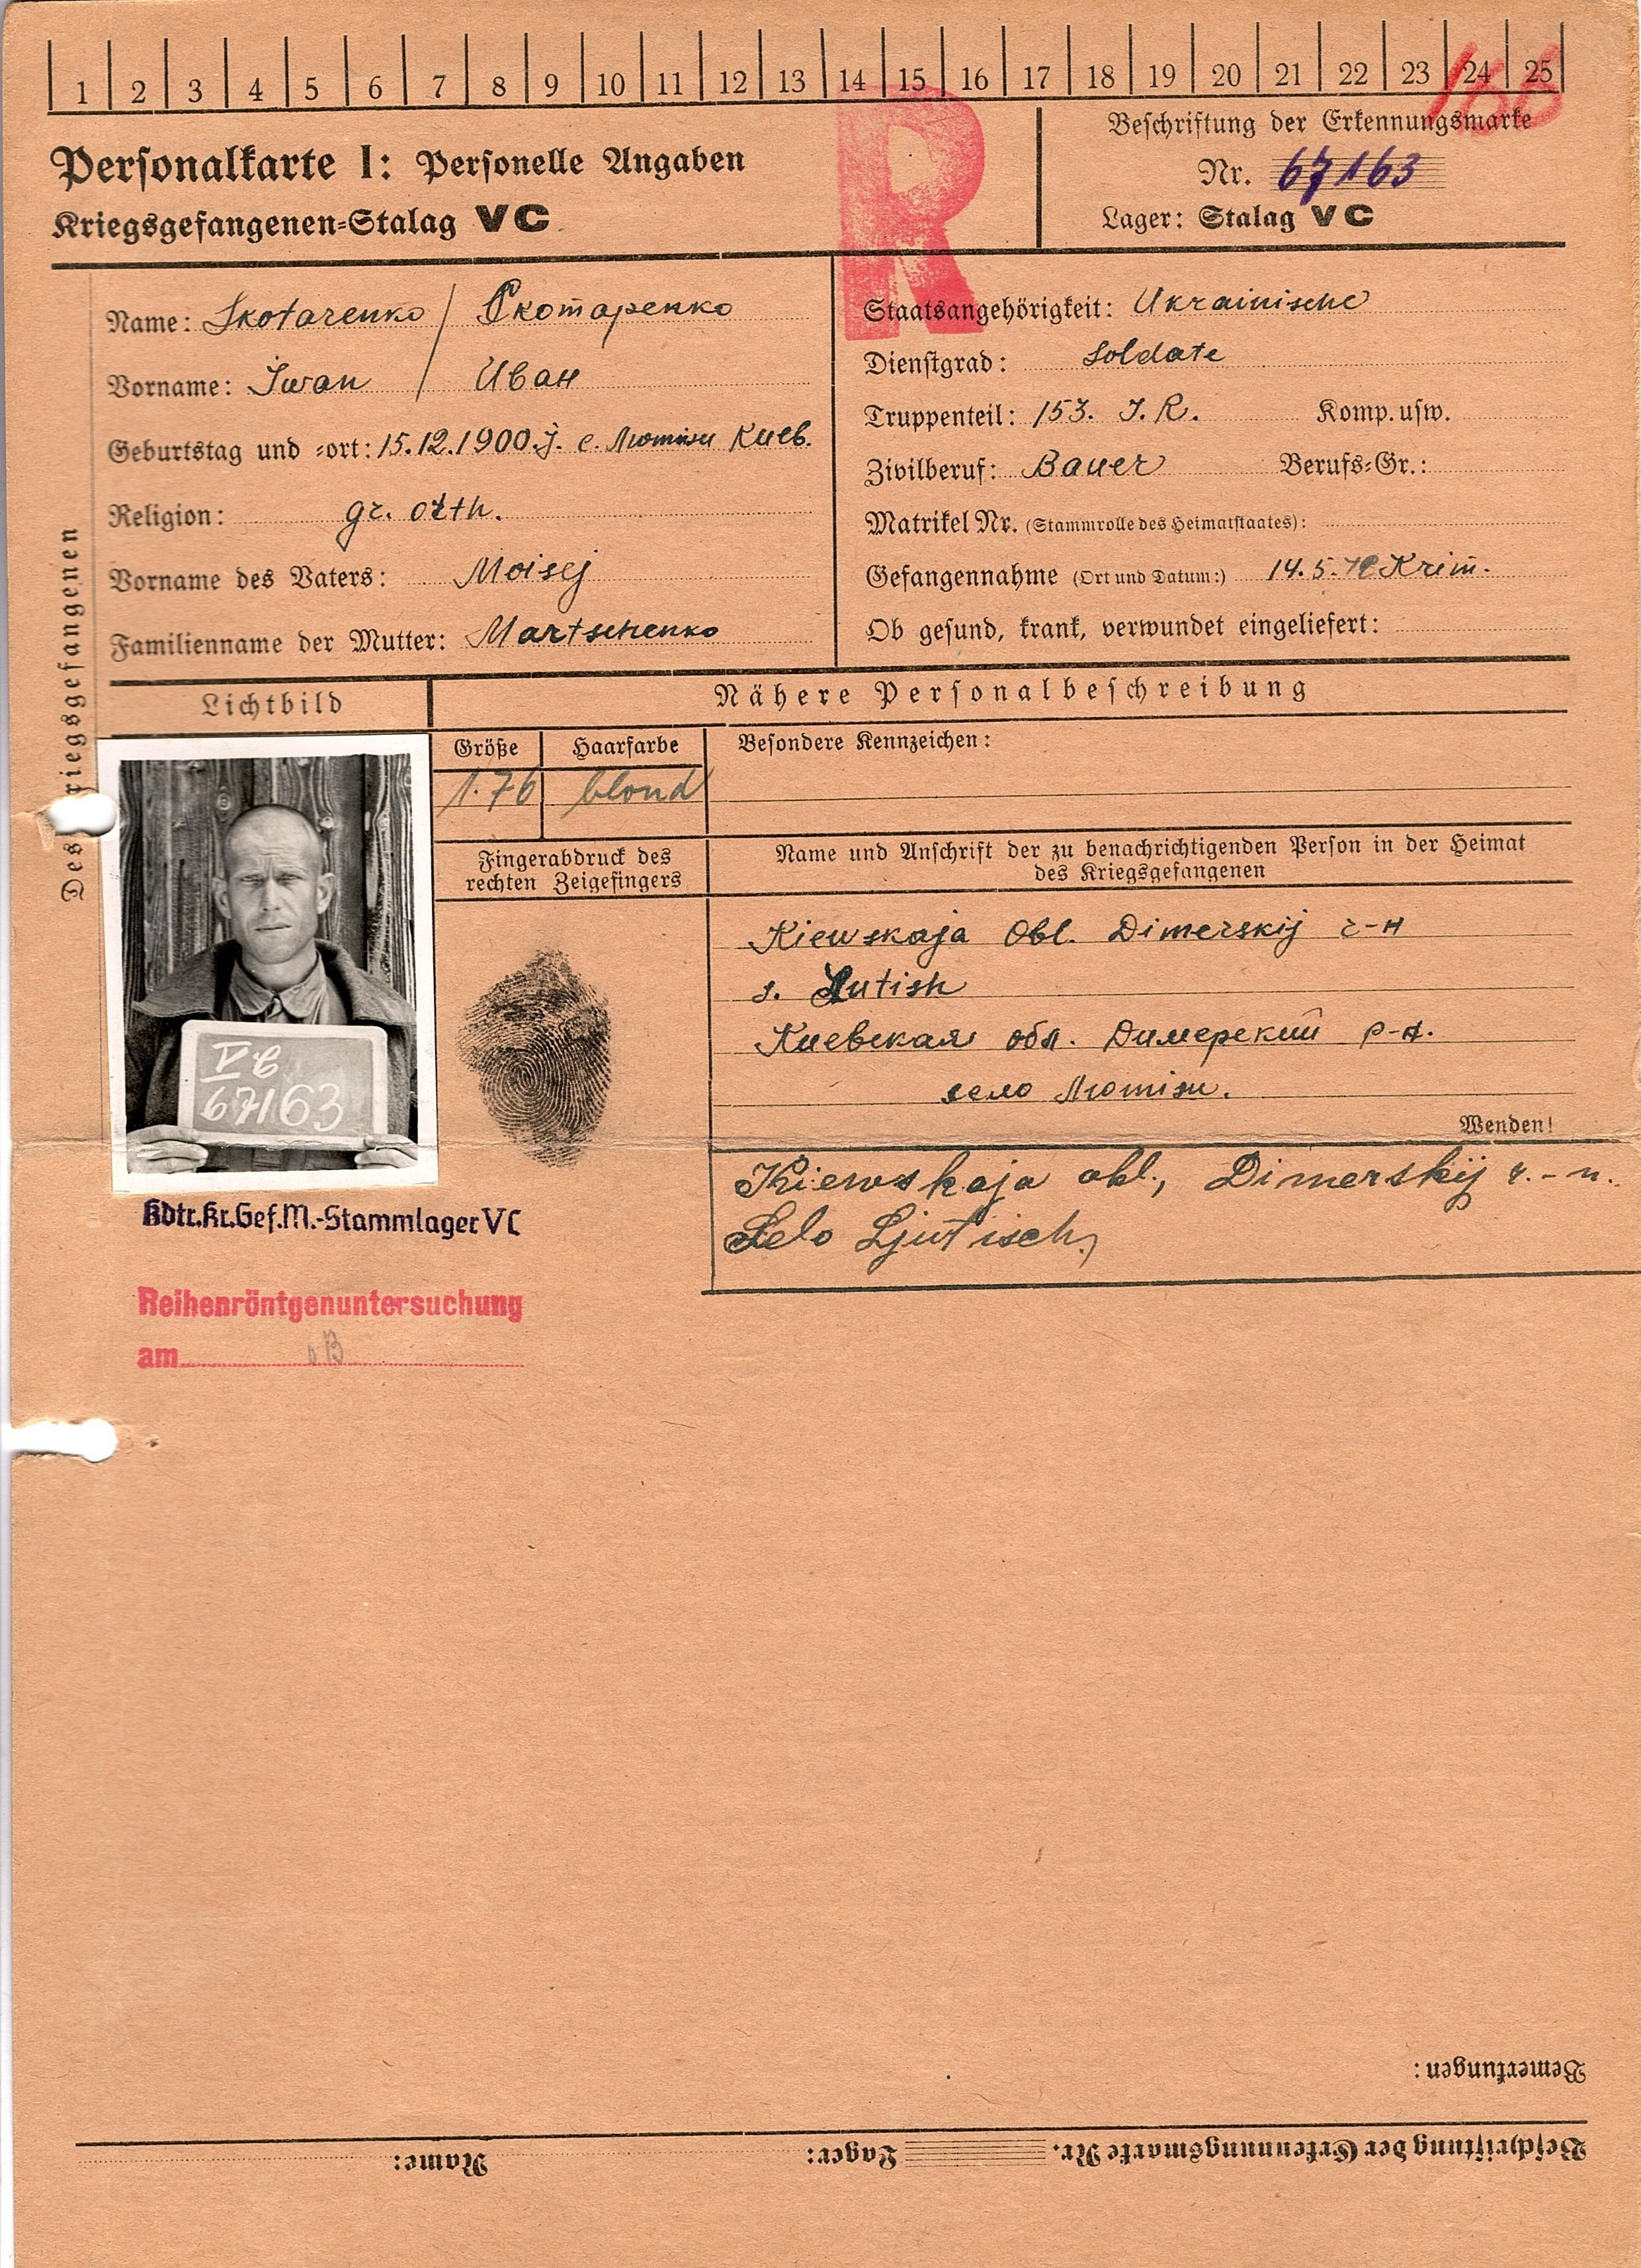 1 2 3 4 5 6 7 8 9 10 11 12 13 14 15 16 17 18 19 20 21 22 23 24 25
166
R
Personalkarte I: Personelle Angaben
Kriegsgefangenen-Stalag VC
Beschriftung der Erkennungsmarke
Nr. 67163
Lager: Stalag VC
Des Kriegsgefangenen
Name: Skotarenko / Скотаренко
Vorname: Iwan / Иван
Geburtstag und -ort: 15.12.1900.J. с. Лютиж Киев.
Religion: gr. orth.
Vorname des Vaters: Moisej
Familienname der Mutter: Martschenko
Staatsangehörigkeit: Ukrainische
Dienstgrad: Soldate
Truppenteil: 153. I.R. Komp. usw.
Zivilberuf: Bauer Berufs-Gr.:
Matrikel Nr. (Stammrolle des Heimatstaates):
Gefangennahme (Ort und Datum:) 14.5.42 Krim.
Ob gesund, krank, verwundet eingeliefert:
Lichtbild
Nähere Personalbeschreibung
Größe Haarfarbe Besondere Kennzeichen:
1.76 blond
Fingerabdruck des
rechten Zeigefingers
Name und Anschrift der zu benachrichtigenden Person in der Heimat
des Kriegsgefangenen
V b
67163
Kiewskaja Obl. Dimerskij r-н
s. Lutish
Киевская обл. Димерский р-н.
село Лютиж.
Wenden!
Kiewskaja obl., Dimerskij r.-n.
Selo Ljutisch,
Kdtr.Kr.Gef.M.-Stammlager VC
Reihenröntgenuntersuchung
am
Bemerkungen:
Beschriftung der Erkennungsmarke Nr. Lager: Name: